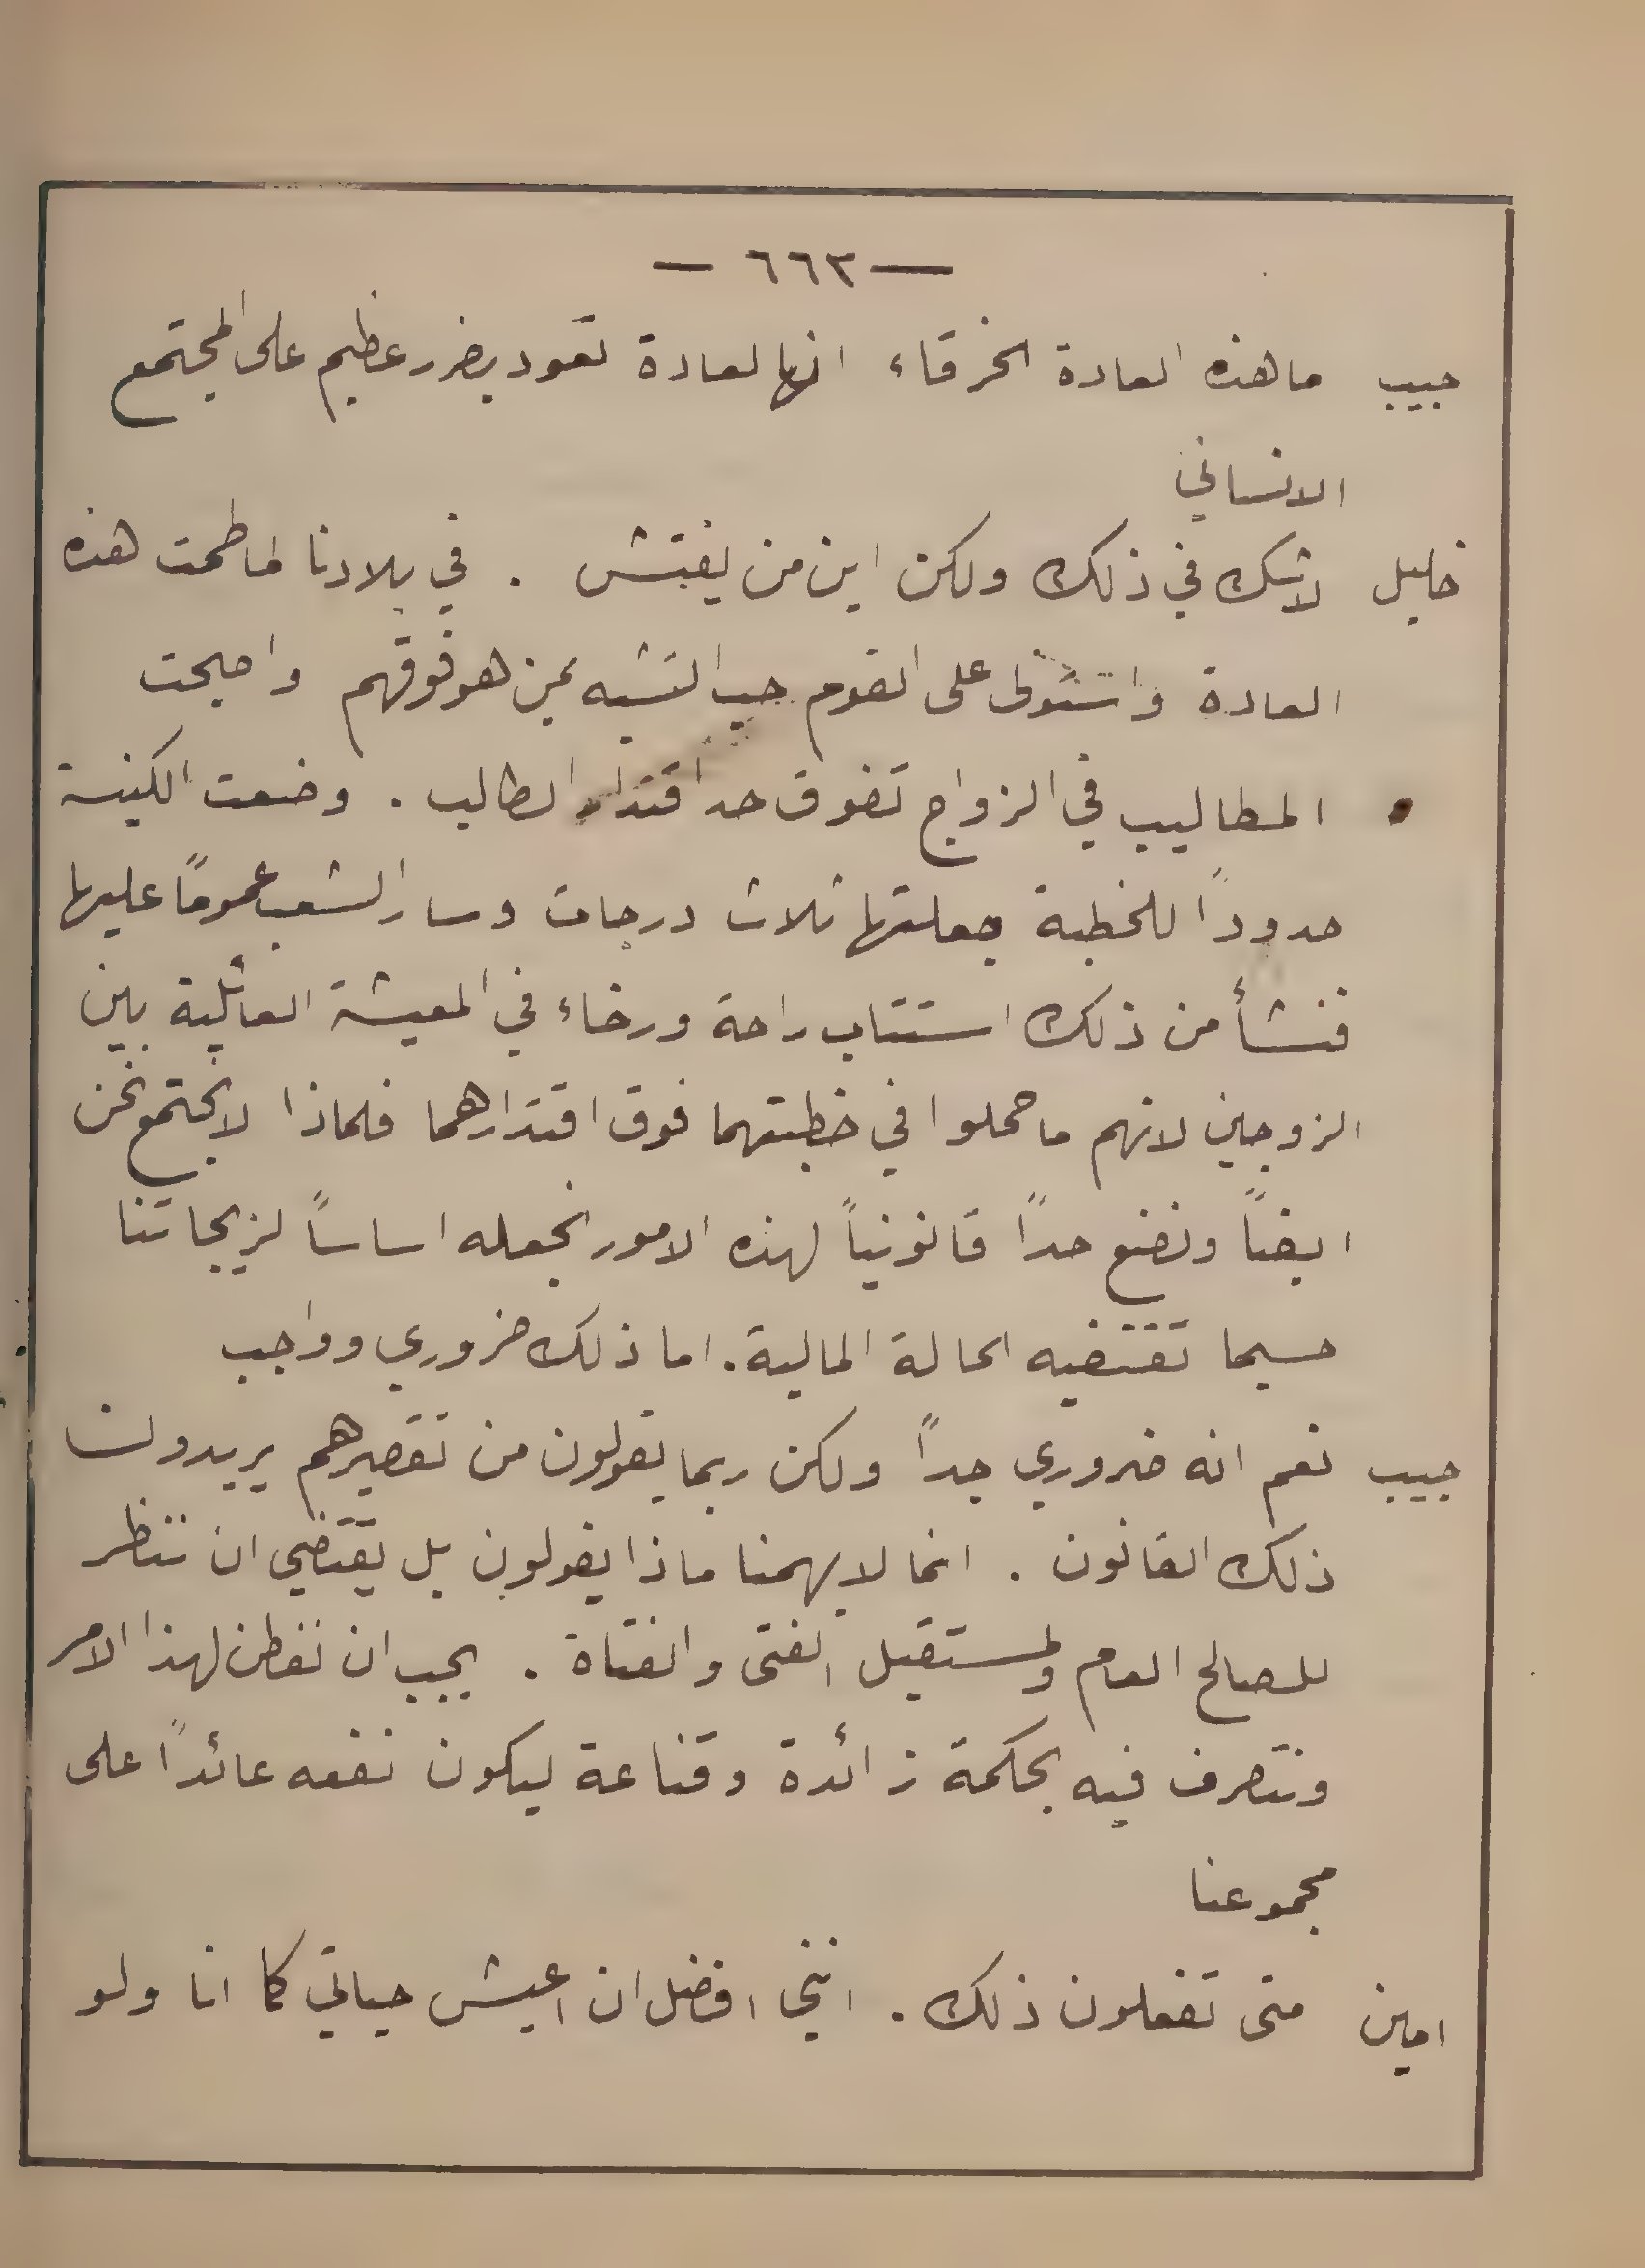 — ٦٦٣ —
حبيب ما هذه العادة الخرقاء انها لعادة تعود بضرر عظيم على المجتمع
الانساني
خليل لا شك في ذلك ولكن اين من يفتش . في بلادنا طمت هذه
العادة واستولى على القوم حب التشبه بمن هو فوقهم واصبحت
المطاليب في الزواج تفوق حد اقتدار الطالب . وضعت الكنيسة
حدوداً للخطبة جعلتها ثلاث درجات وسار الشعب عموماً عليها
فنشأ من ذلك استتاب راحة ورخاء في المعيشة العائلية بين
الزوجين لانهم ما حملوا في خطبتهما فوق اقتدارهما فلماذا لا نجتمع نحن
ايضاً ونضع حداً قانونياً لهذه الامور نجعله اساساً لزيجاتنا
حسبما تقتضيه الحالة المالية . اما ذلك ضروري وواجب
حبيب نعم انه ضروري جداً ولكن ربما يقولون من تقصيرهم يريدون
ذلك القانون . انما لا يهمنا ماذا يقولون بل يقتضي ان ننظر
للصالح العام ولمستقبل الفتى والفتاة . يجب ان نفطن لهذا الامر
ونتصرف فيه بحكمة زائدة وقناعة ليكون نفعه عائداً على
مجموعنا
امين متى تفعلون ذلك . انني افضل ان اعيش حياتي كما انا ولو